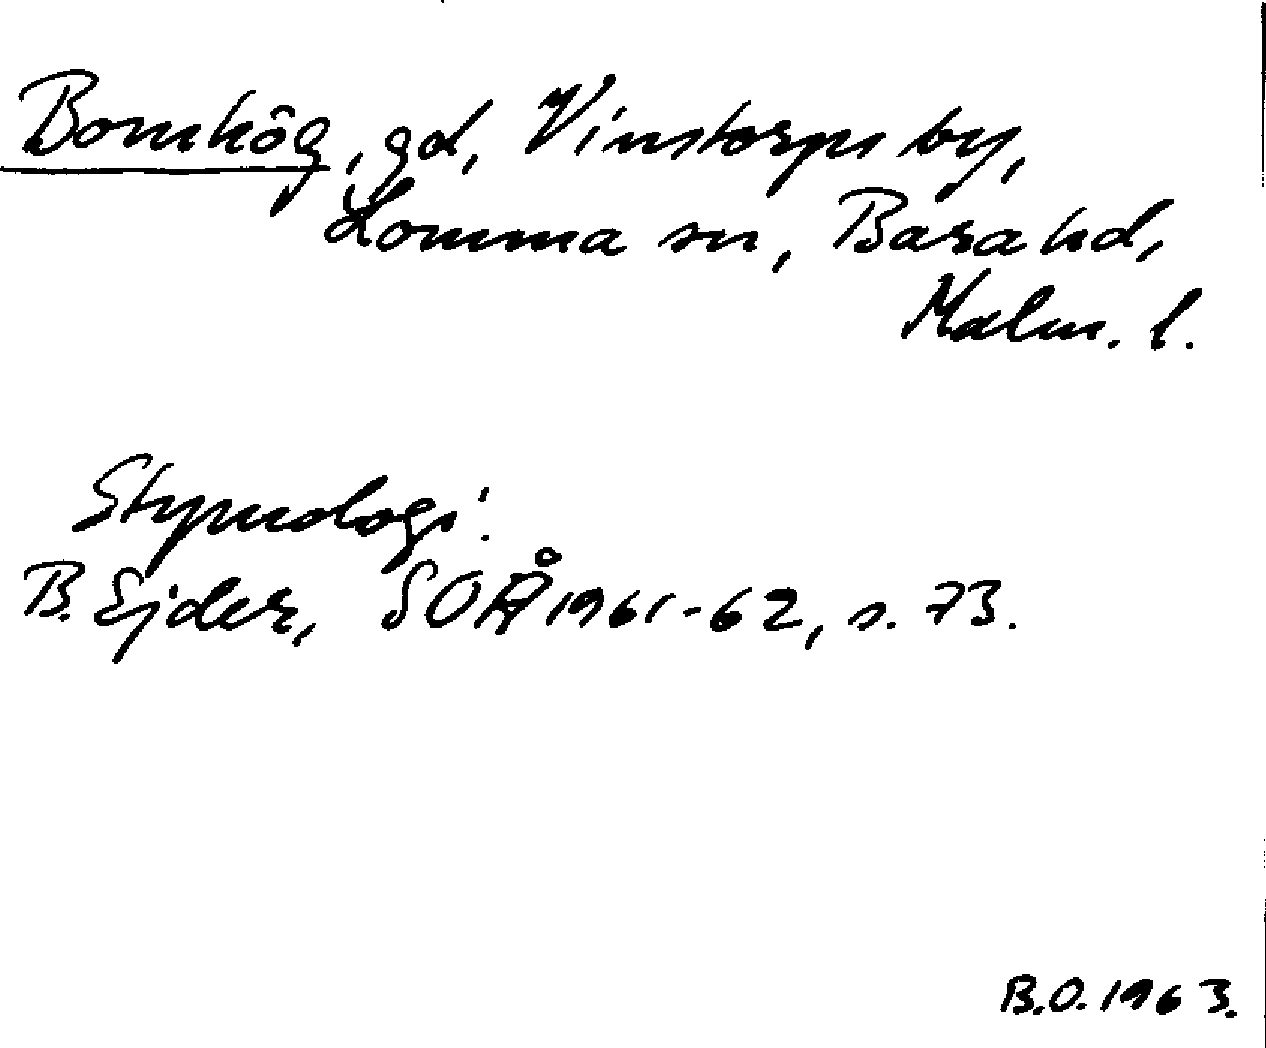 Bomhög, gd, Vinstorps by,
Lomma sn, Bara hd,
Malm. l.
Etymologi:
B. Ejder, SOÅ 1961-62, s. 73.
B.O. 1963.